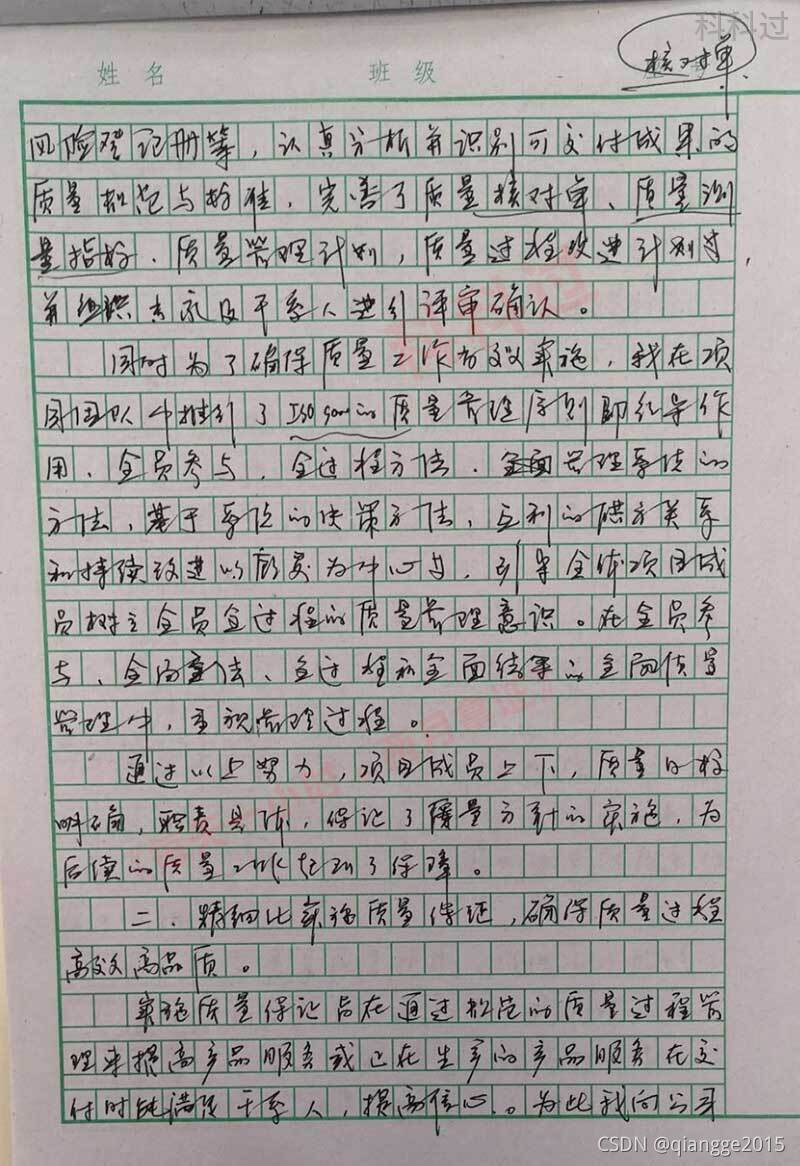 科科过
姓名 班级
核对单
风险登记册等，认真分析并识别可交付成果的
质量规范与标准，完善了质量核对单、质量测
量指标、质量管理计划，质量过程改进计划过，
并组织专家及干系人进行评审确认。
同时为了确保质量工作有效实施，我在项
目团队中推行了ISO 9000的质量管理原则即领导作
用、全员参与、全过程方法、全面管理系统的
方法、基于事实的决策方法、互利的供方关系
和持续改进以顾客为中心等，引导全体项目成
员树立全员全过程的质量管理意识。在全员参
与、全方法、全过程和全面结果的全面质量
管理中，重视管理过程。
通过以上努力，项目成员上下，质量目标
明确，职责具体，保证了质量方针的实施，为
后续的质量工作起到了保障。
二、精细化实施质量保证，确保质量过程
高效高品质。
实施质量保证旨在通过规范的质量过程管
理来提高产品服务或正在生产的产品服务在交
付时能满足干系人，提高信心。为此我向公司
CSDN @qiangge2015